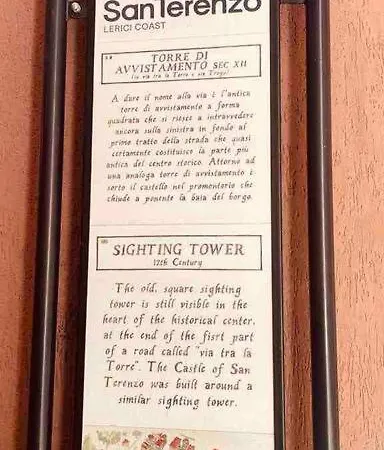 SanTerenzo
LERICI COAST
TORRE DI
AVVISTAMENTO SEC XII
(in via tra la Torre e via Trogu)
A dare il nome alla via è l'antica
torre di avvistamento a forma
quadrata che si riesce a intravvedere
ancora sulla sinistra in fondo al
primo tratto della strada che quasi
certamente costituisco la parte più
antica del centro storico. Attorno ad
una analoga torre di avvistamento è
sorto il castello nel promontorio che
chiude a ponente la baia del borgo.
SIGHTING TOWER
12th Century
The old, square sighting
tower is still visible in the
heart of the historical center,
at the end of the fisrt part
of a road called "via tra la
Torre". The Castle of San
Terenzo was built around a
similar sighting tower.